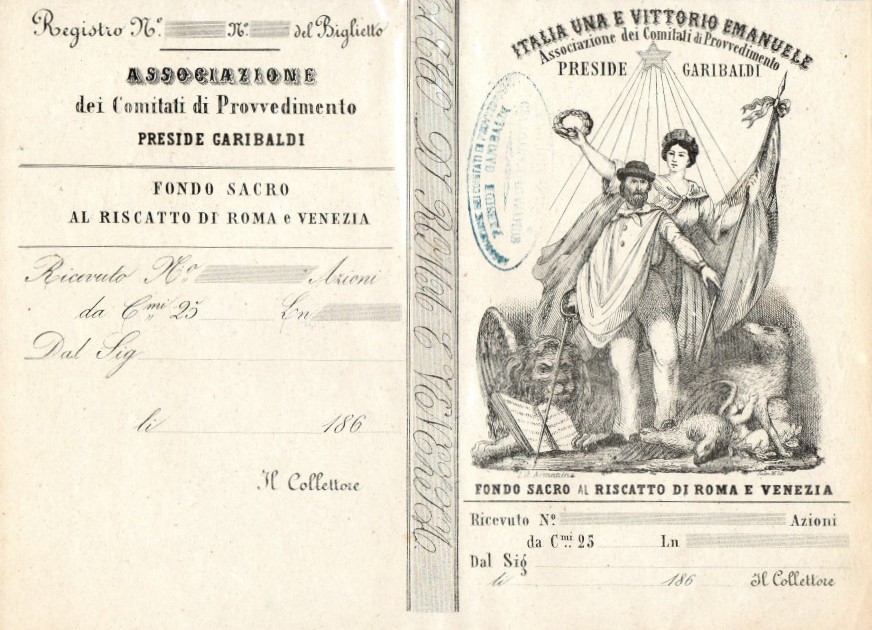 Registro Nº. Nº. del Biglietto
ASSOCIAZIONE
dei Comitati di Provvedimento
PRESIDE GARIBALDI
FONDO SACRO
AL RISCATTO DI ROMA e VENEZIA
Ricevuto Nº Azioni
da Cmi 25 Ln
Dal Sig
li 186
Il Collettore
ITALIA UNA E VITTORIO EMANUELE
Associazione dei Comitati di Provvedimento
PRESIDE GARIBALDI
FONDO SACRO AL RISCATTO DI ROMA E VENEZIA
Ricevuto Nº. Azioni
da Cmi. 25 Ln
Dal Sig
li 186 Il Collettore